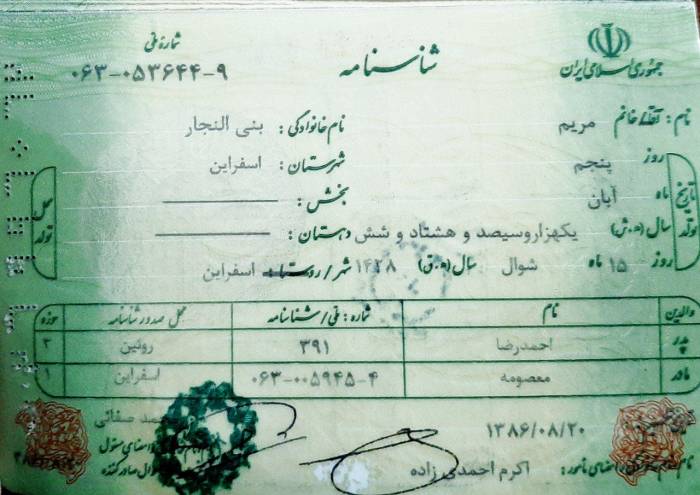 جمهوری اسلامی ایران
شناسنامه
شماره ملی
۰۶۳-۰۵۳۶۴۴-۹
نام: آقا/خانم مریم نام خانوادگی: بنی النجار
تاریخ تولد روز پنجم شهرستان: اسفراین محل تولد
ماه آبان بخش:
سال (ه.ش) یکهزاروسیصد و هشتاد و شش دهستان:
روز ۱۵ ماه شوال سال (ه.ق) ۱۴۲۸ شهر/روستا: اسفراین
والدین نام شماره: ملی/شناسنامه محل صدور شناسنامه حوزه
پدر احمدرضا ۳۹۱ روئین ۳
مادر معصومه ۰۶۳-۰۰۵۹۴۵-۴ اسفراین ۱
۱۳۸۶/۰۸/۲۰ صفائی
مامور: اکرم احمدی زاده